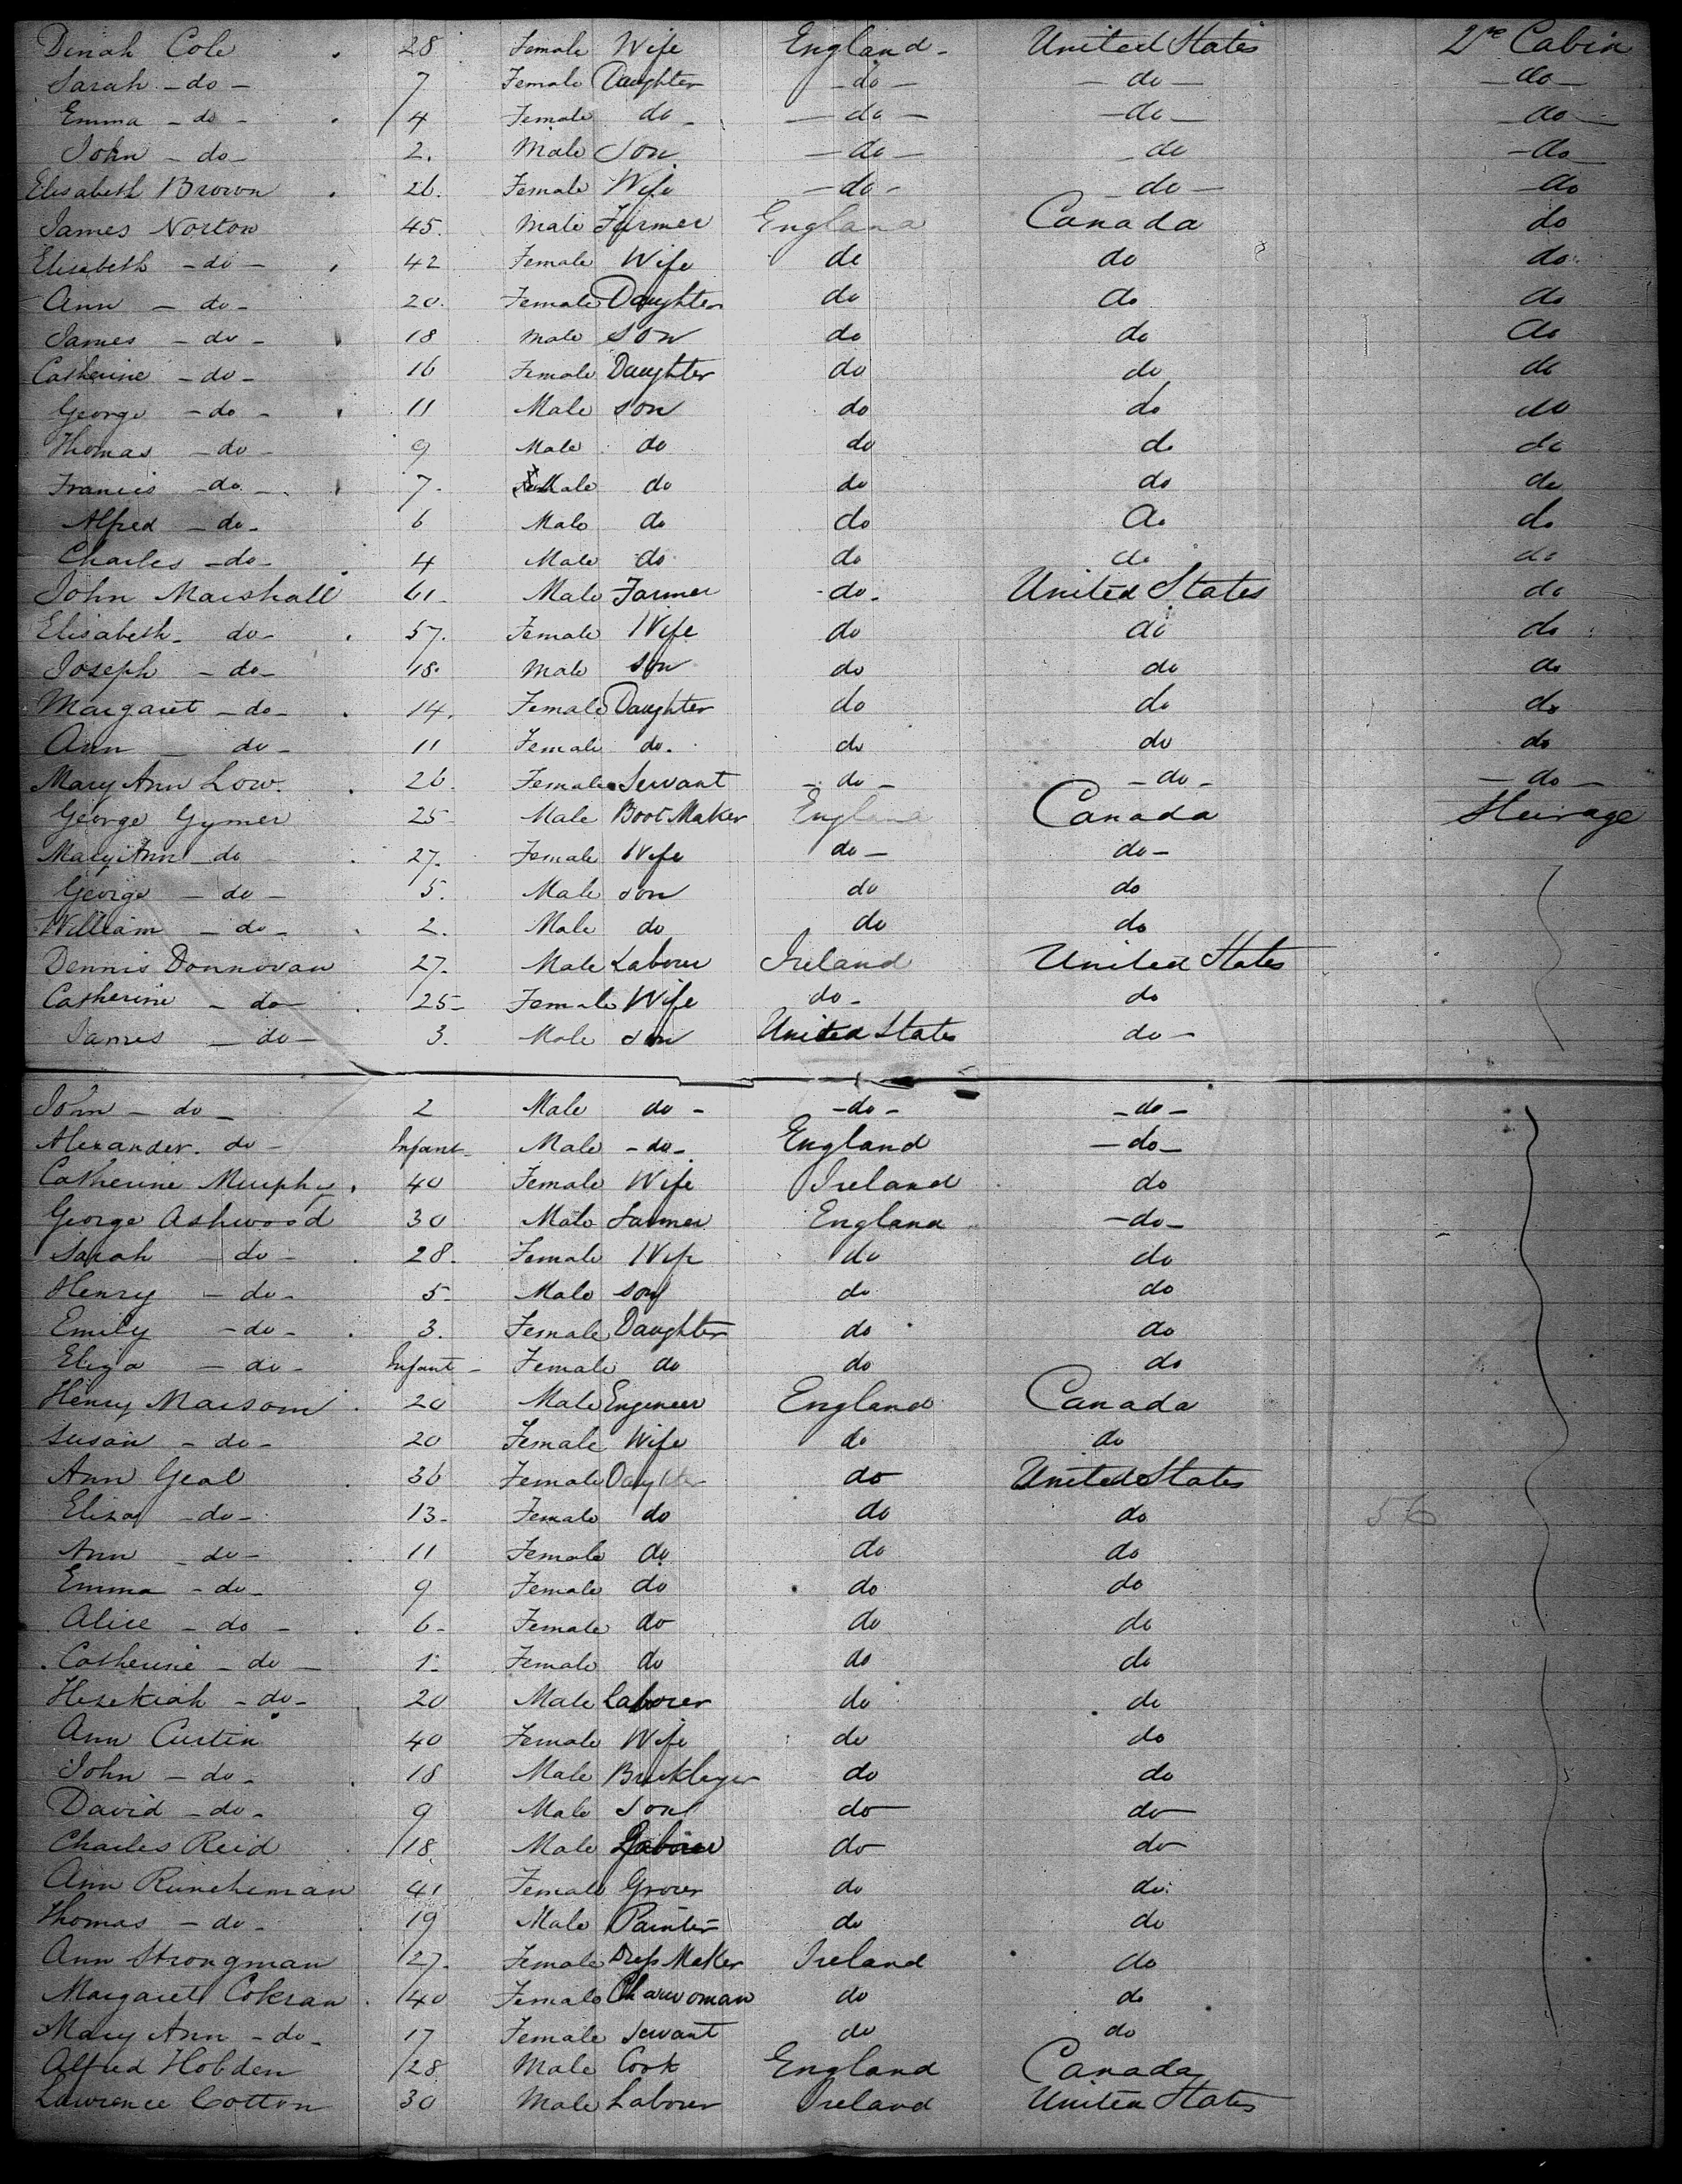 Dinah Cole 28 Female Wife England - United States 2nd Cabin
Sarah - do - 7 Female Daughter - do - - do - - do -
Emma - do - 4 Female do - - do - - do - - do -
John - do - 2. Male Son - do - - do - do -
Elisabeth Brown . 26. Female Wife - do - do - - do
James Norton 45. Male Farmer England Canada do
Elisabeth - do - . 42 Female Wife do do do.
Ann - do - 20. Female Daughter do do do
James - do - 18 Male Son do do do
Catherine - do - 16 Female Daughter do do do
George - do - 11 Male Son do do do
Thomas - do - 9 Male do do do do
Francis - do - 7. Male do do do do
Alfred - do - 6 Male do do do do
Charles - do - 4 Male do do do do
John Marshall 61 Male Farmer - do - United States do
Elisabeth - do - . 57. Female Wife do do do
Joseph - do - 18. Male Son do do do
Margaret - do - . 14. Female Daughter do do do
Ann - do - 11 Female do. do do do
Mary Ann Low. . 26. Female Servant - do - - do - - do -
George Gymer 25 Male Boot Maker England Canada Steirage
Mary Ann do . 27. Female Wife do - do -
George - do - 5. Male Son do do
William - do - . 2. Male do do do
Dennis Donnovan 27. Male Laborer Ireland United States
Catherine - do - . 25 - Female Wife do - do
James - do - 3. Male Son United States do -
John - do - 2 Male do - - do - - do -
Alexander. do - Infant - Male - do - England - do -
Catherine Murphy . 40 Female Wife Ireland do
George Ashwood 30 Male Farmer England - do -
Sarah - do - . 28. Female Wife do do
Henry - do - 5 - Male Son do do
Emily - do - . 3. Female Daughter do do
Eliza - do - Infant - Female do do do
Henry Marsom . 20 Male Engineer England Canada
Susan - do - 20 Female Wife do do
Ann Geal . 36 Female Daughter do United States
Eliza - do - 13 - Female do do do 56
Ann - do - . 11 Female do do do
Emma - do - 9 Female do do do
Alice - do - . 6 - Female do do do
Catherine - do - 1 - Female do do do
Hezekiah - do - . 20 Male Laborer do do
Ann Curtin 40 Female Wife do do
John - do - . 18 Male Bricklayer do do
David - do - 9 Male Son do do
Charles Reid . 18. Male Laborer do do
Ann Runcheman 41 Female Grocer do do.
Thomas - do - . 19 Male Painter do do
Ann Strongman 27. Female Dress Maker Ireland do
Margaret Cokran . 40 Female Charwoman do do
Mary Ann - do - 17 Female Servant do do
Alfred Hobden 28 Male Cook England Canada
Lawrence Cotton 30 Male Laborer Ireland United States